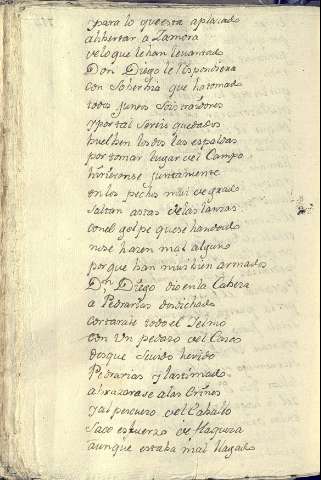 ypara lo questa aplaçado
alibertar a Zamora
velo que le han levantado
Don Diego le Respondiera
con Soberbia que ha tomado
todos juntos sois traidores
y por tal sereis quedados
buelben los dos las espaldas
por tomar lugar del Campo
hirieronse juntamente
en los pechos mui de grado
saltan astas de las lanzas
con el golpe que se han dado
no se hazen mal alguno
porque han mui bien armados
Dn Diego dio en la Cabeza
a Pedrarias desdichado
cortarale todo el Yelmo
con un pedazo del Casco
desque se vido herido
Pedrarias y lastimado
abrazarase a las Crines
y al pescuezo del Caballo
Saco esfuerzo de flaqueza
aunque estaba mal llagado